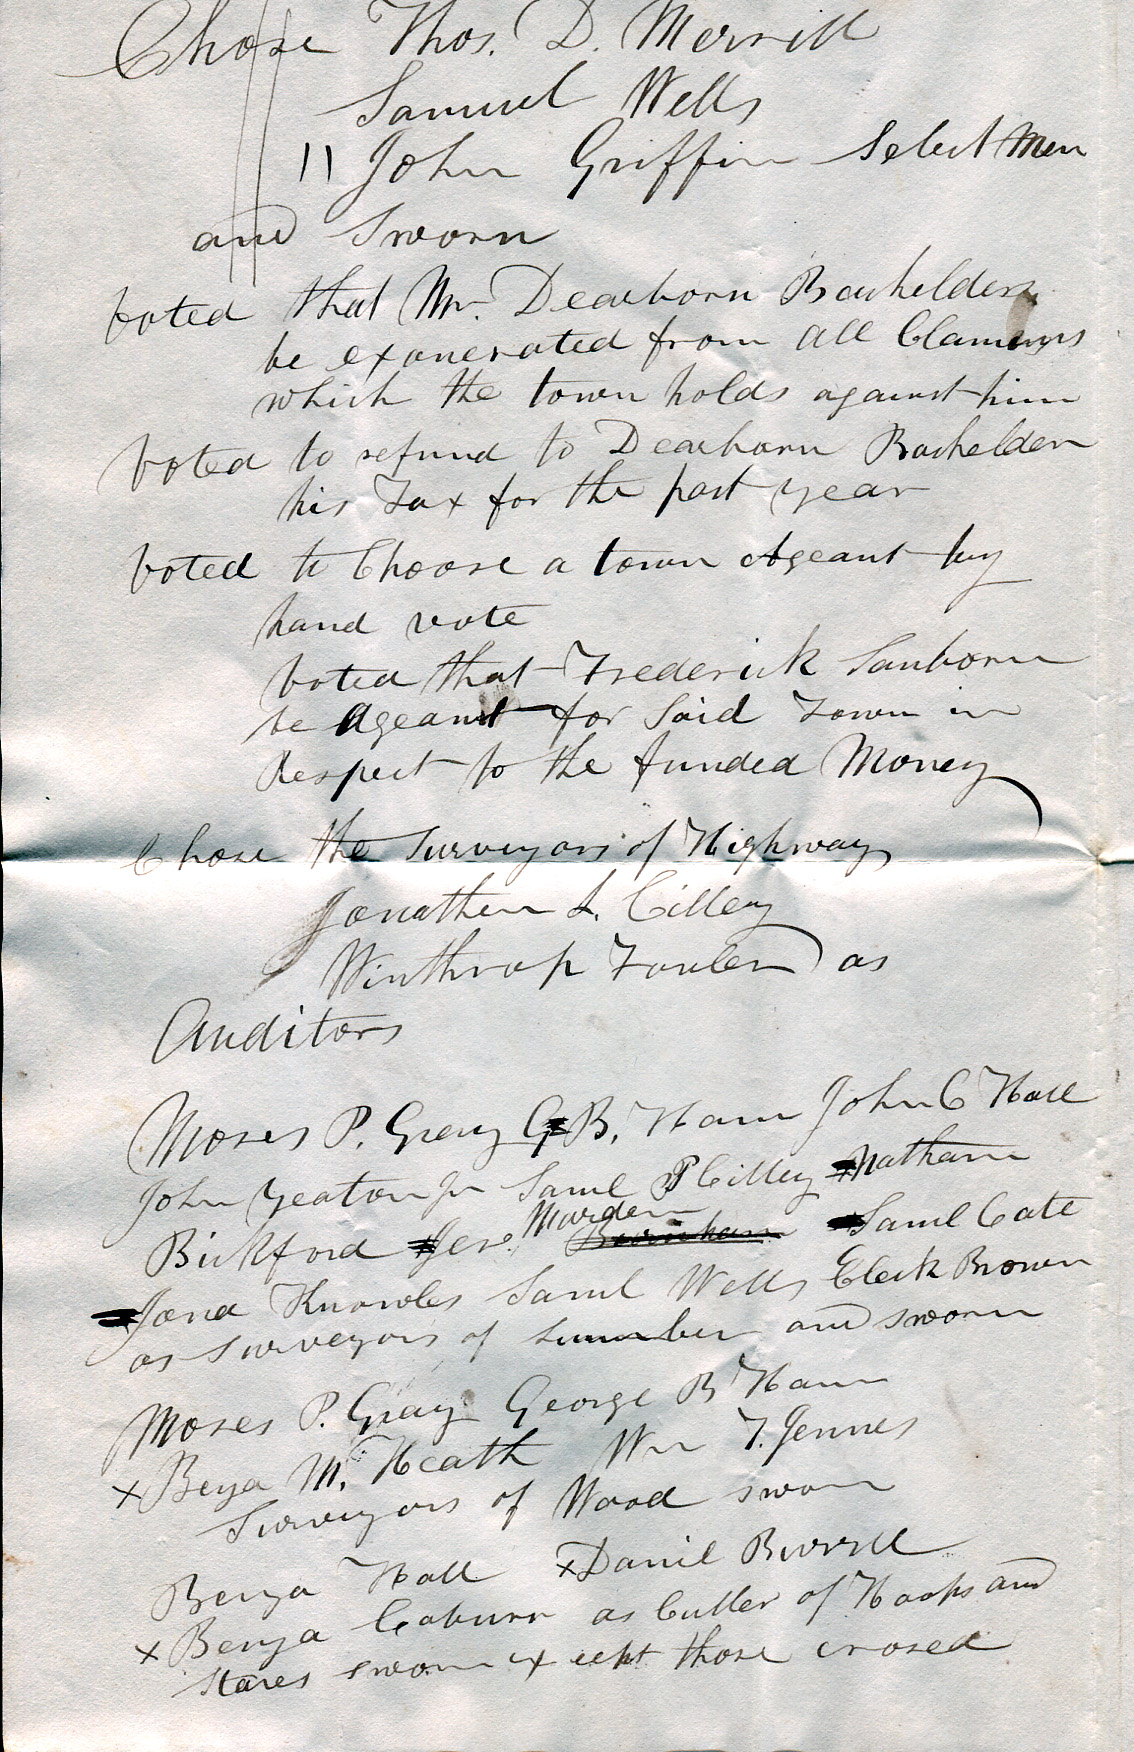 Chose Thos. D. Merrill
Samuel Wells
" John Griffin Select Men
and Sworn
Voted that Mr. Dearborn Bachelder
be exonerated from all Claims
which the town holds against him
Voted to refund to Dearborn Bachelder
his Tax for the past year
Voted to Choose a town Ageant by
hand vote
Voted that Frederick Sanborn
be Ageant for Said Town in
Respect to the funded Money
Chose the Surveyors of Highway
Jonathen L. Cilley
Winthrop Fowler as
Auditors
Moses P. Gray G B. Ham John C Hall
John Yeaton Jr Saml P Cilley Nathan
Marden
Bickford Jere. Burnham Saml Cate
Jona Knowles Saml Wells Eleck Brown
as Surveyors of Lumber and sworn
Moses P. Gray George B Ham
x Benja M. Heath Wm T. Jennes
Surveyors of Wood sworn
Benja Hall x Daniel Burrell
x Benja Coburn as Culler of Hoops and
Staves sworn except those crosed